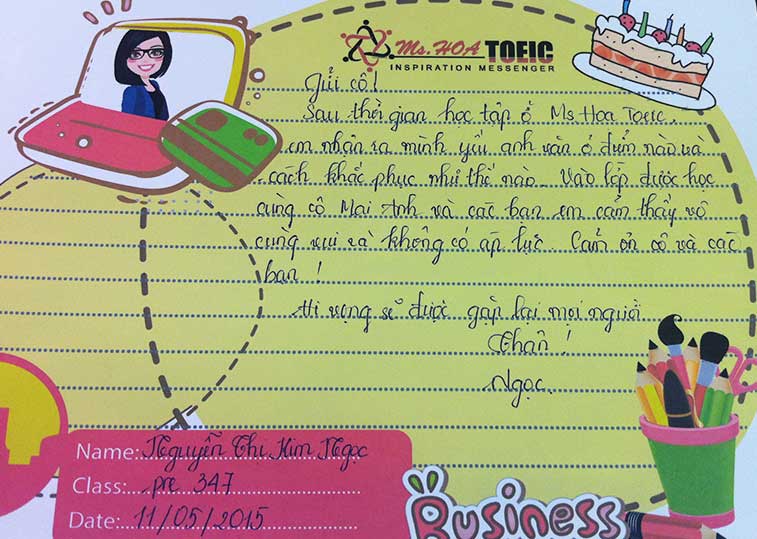 Ms. HOA TOEIC
INSPIRATION MESSENGER
Gửi cô!
Sau thời gian học tập ở Ms Hoa Toeic,
em nhận ra mình yếu anh văn ở điểm nào và
cách khắc phục như thế nào. Vào lớp được học
cùng cô Mai Anh và các bạn em cảm thấy vô
cùng vui và không có áp lực. Cảm ơn cô và các
bạn!
Hi vọng sẽ được gặp lại mọi người.
Thân!
Ngọc.
Name: Nguyễn Thị Kim Ngọc
Class: pre 347
Date: 11/05/2015
Business